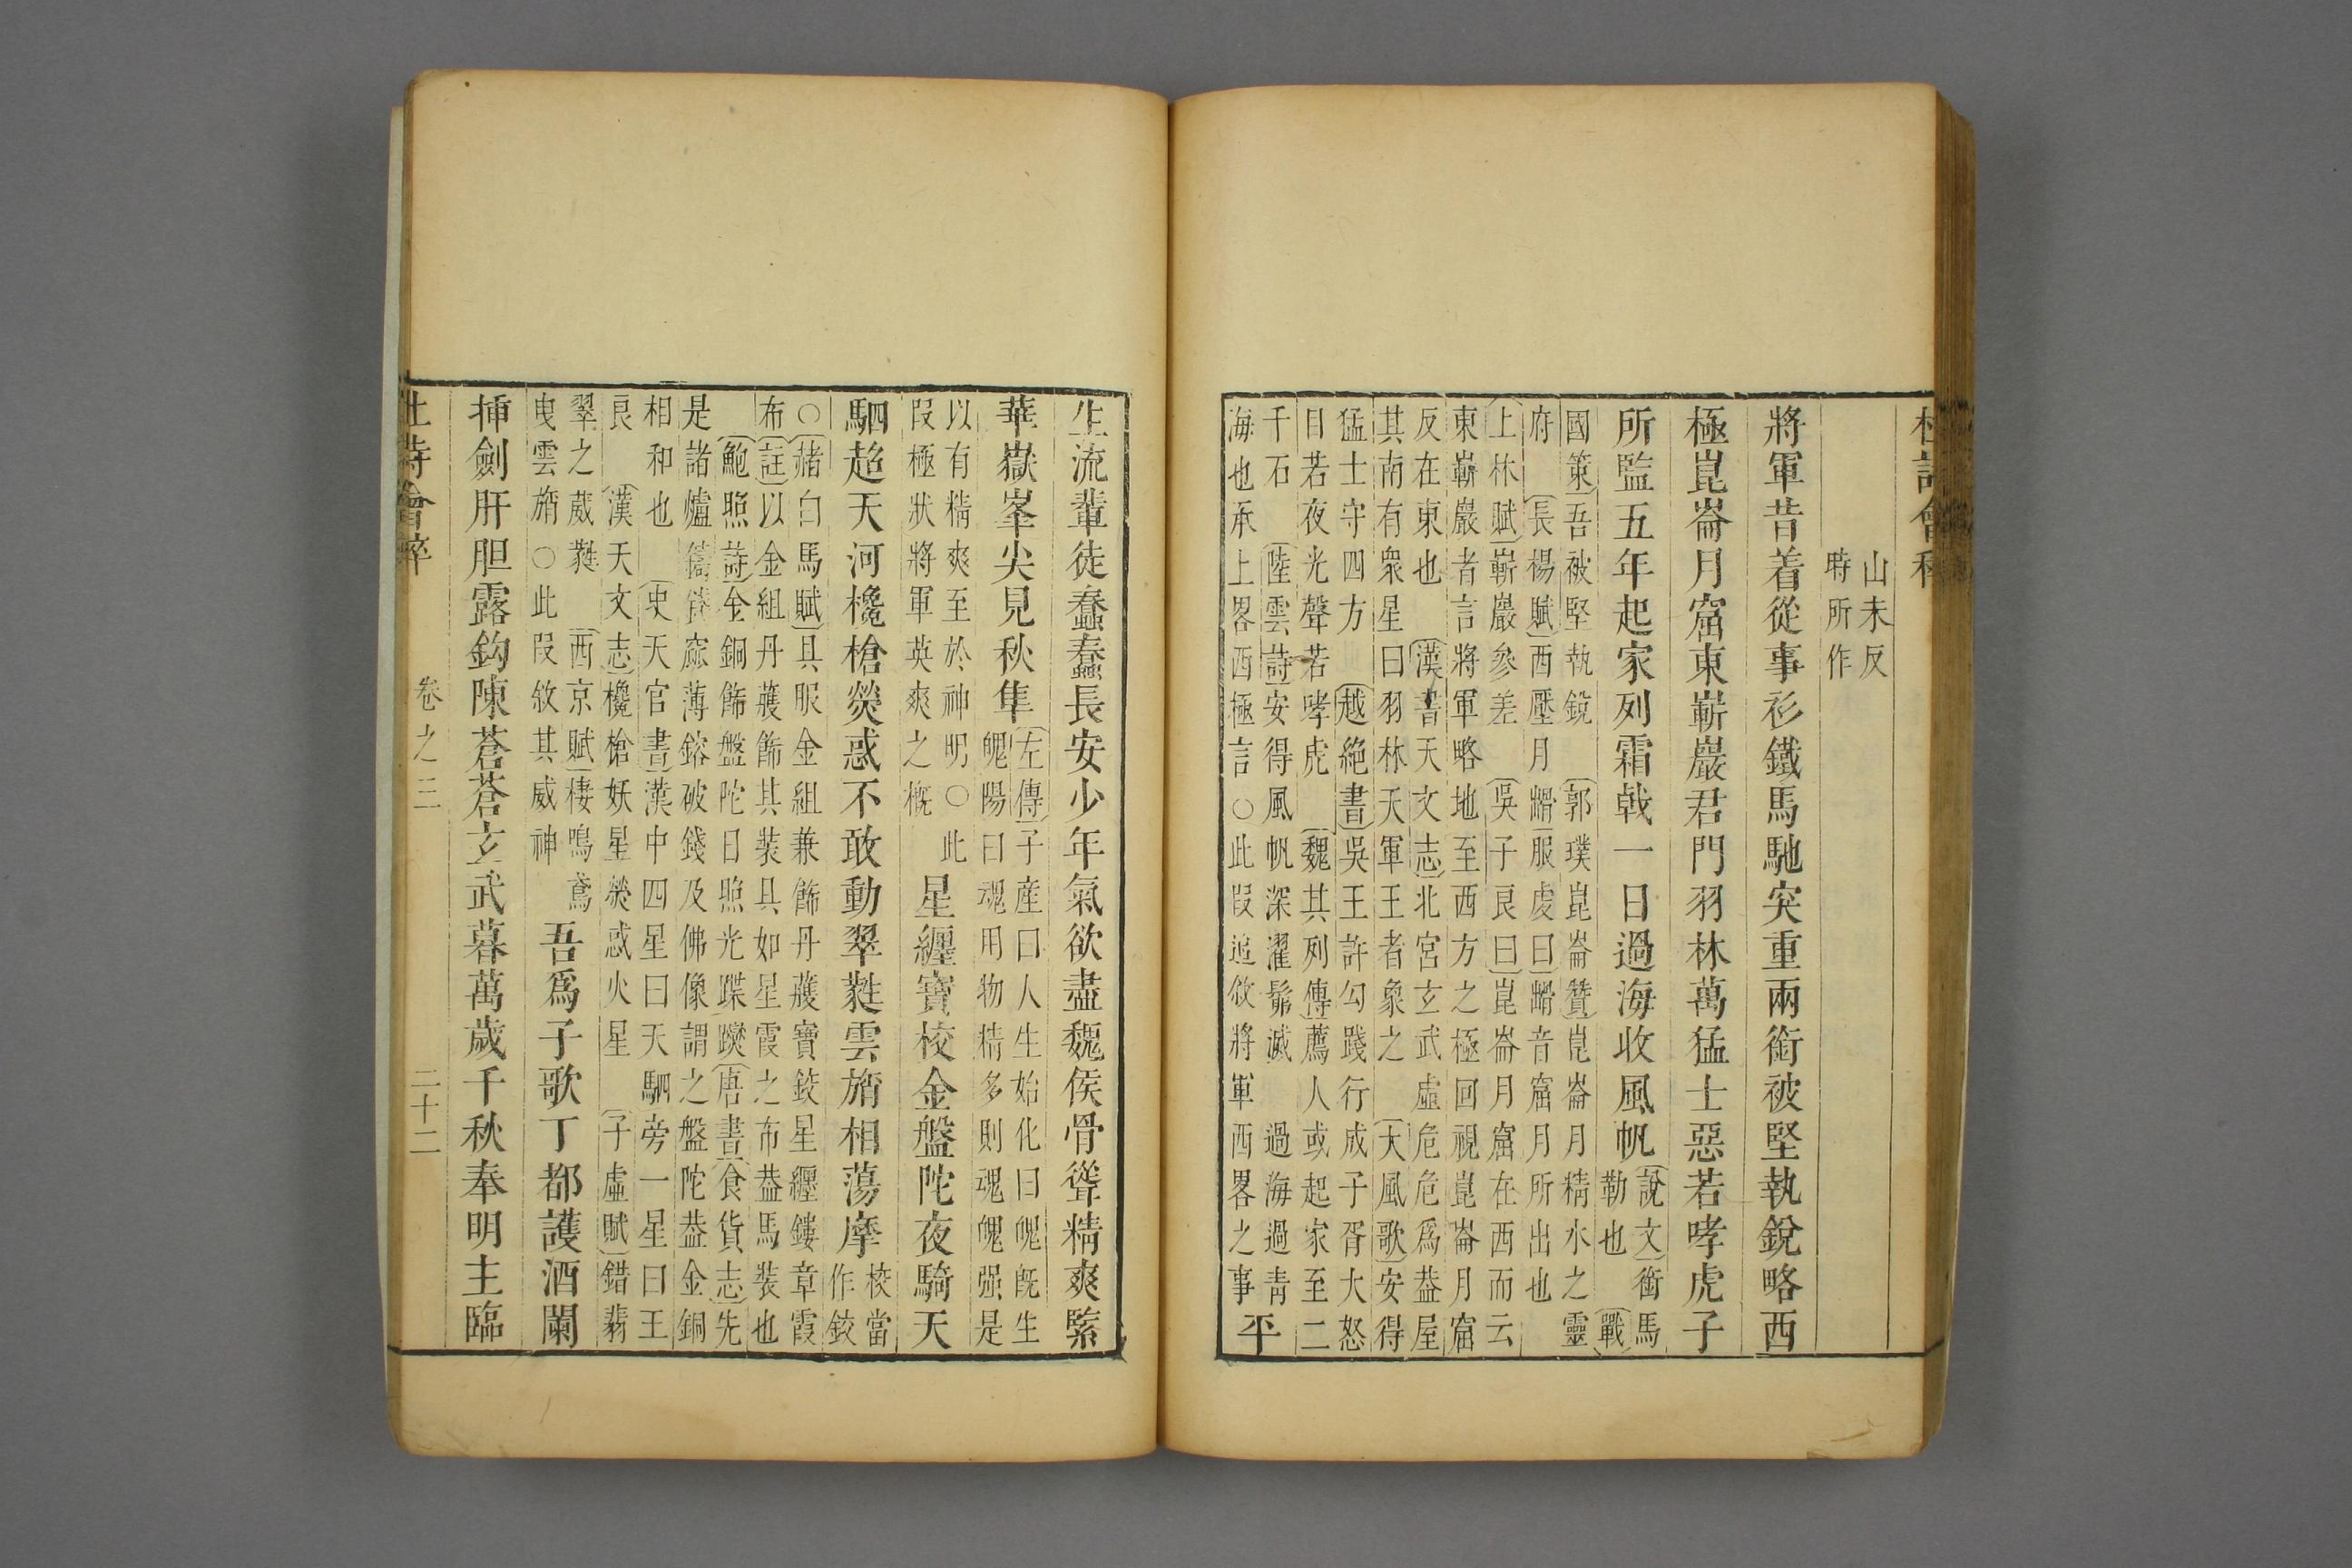 杜詩會稡
山未反
時所作
將軍昔着從事衫鐵馬馳突重兩銜被堅執銳略西
極崑崙月窟東嶄巖君門羽林萬猛士惡若哮虎子
所監五年起家列霜戟一日過海收風帆
說文銜馬
勒也 戰
國策吾被堅執銳 郭璞崑崙贊崑崙月精水之靈
府 長楊賦西壓月𡻱服虔曰𡻱音窟月所出也
上林賦嶄巖參差 吳子良曰崑崙月窟在西而云
東嶄巖者言將軍略地至西方之極回視崑崙月窟
反在東也 漢書天文志北宮玄武虛危危爲葢屋
其南有衆星曰羽林天軍王者象之 大風歌安得
猛士守四方 越絶書吳王許勾踐行成子胥大怒
目若夜光聲若哮虎 魏其列傳薦人或起家至二
千石 陸雲詩安得風帆深濯髴滅 過海過靑
海也承上畧西極言○此叚追敘將軍西畧之事
平
生流輩徒蠢蠢長安少年氣欲盡魏侯骨聳精爽緊
華嶽峯尖見秋隼
左傳子産曰人生始化曰魄旣生
魄陽曰魂用物精多則魂魄强是
以有精爽至於神明○此
叚極狀將軍英爽之槪
星纏寶校金盤陀夜騎天
駟超天河欃槍熒惑不敢動翠蕤雲旓相蕩摩
校當
作鉸
○赭白馬賦具服金組兼飾丹雘寶鉸星纏鏤章霞
布註以金組丹雘飾其裝具如星霞之布葢馬裝也
鮑照詩金銅飾盤陀日照光蹀躞唐書食貨志先
是諸爐鑄𥫣窳薄鎔破錢及佛像謂之盤陀葢金銅
相和也 史天官書漢中四星曰天駟旁一星曰王
良 漢天文志欃槍妖星熒惑火星 子虛賦錯翡
翠之葳蕤 西京賦棲鳴鳶
曳雲旓○此叚敘其威神
吾爲子歌丁都護酒闌
揷劍肝胆露鈎陳蒼蒼玄武暮萬歲千秋奉明主臨
杜詩會稡 卷之三 二十二